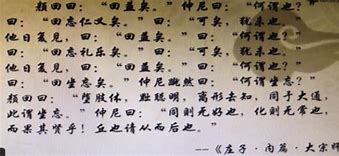 颜回曰：“回益矣。”仲尼曰：“何谓也？”
曰：“回忘仁义矣。”曰：“可矣，犹未也。”
他日复见，曰：“回益矣。”曰：“何谓也？”
曰：“回忘礼乐矣。”曰：“可矣，犹未也。”
他日复见，曰：“回益矣。”曰：“何谓也？”
曰：“回坐忘矣。”仲尼蹴然曰：“何谓坐忘？”
颜回曰：“堕肢体，黜聪明，离形去知，同于大通，
此谓坐忘。”仲尼曰：“同则无好也，化则无常也。
而果其贤乎！丘也请从而后也。”
--《庄子·内篇·大宗师